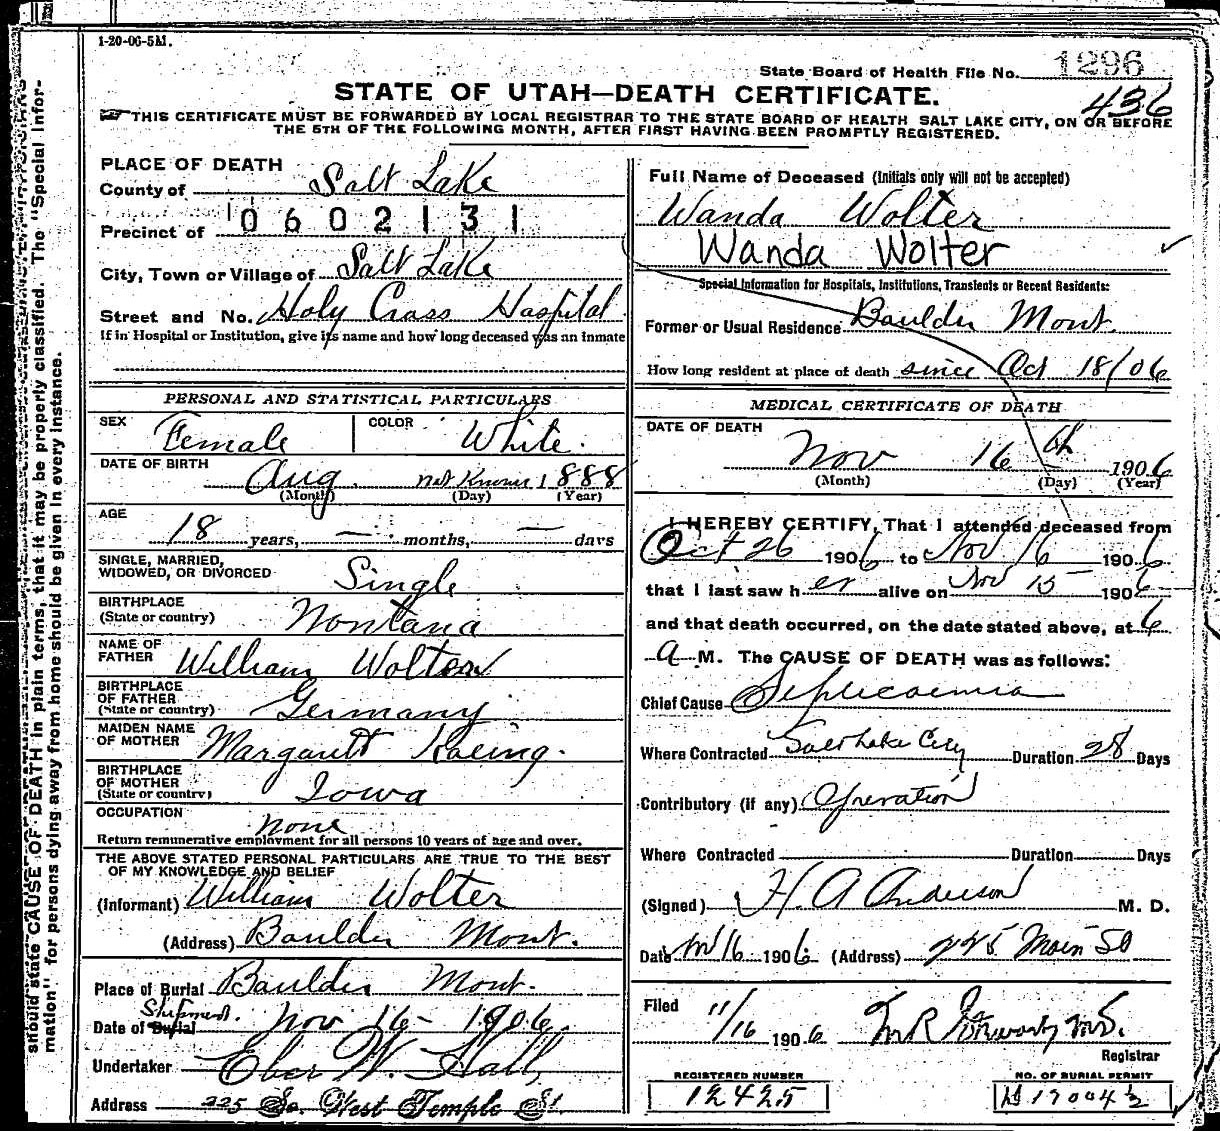 1-20-06-5M.
State Board of Health File No. 1296
STATE OF UTAH—DEATH CERTIFICATE.
436
THIS CERTIFICATE MUST BE FORWARDED BY LOCAL REGISTRAR TO THE STATE BOARD OF HEALTH SALT LAKE CITY, ON OR BEFORE
THE 5TH OF THE FOLLOWING MONTH, AFTER FIRST HAVING BEEN PROMPTLY REGISTERED.
PLACE OF DEATH
County of Salt Lake
0602131
Precinct of
City, Town or Village of Salt Lake
Street and No. Holy Cross Hospital
If in Hospital or Institution, give its name and how long deceased was an inmate
PERSONAL AND STATISTICAL PARTICULARS
SEX Female COLOR White.
DATE OF BIRTH Aug not Known 1888
(Month) (Day) (Year)
AGE
18 years, — months, — days
SINGLE, MARRIED,
WIDOWED, OR DIVORCED Single
BIRTHPLACE
(State or country) Montana
NAME OF
FATHER William Wolter
BIRTHPLACE
OF FATHER
(State or country) Germany
MAIDEN NAME
OF MOTHER Margarett
BIRTHPLACE
OF MOTHER
(State or country) Iowa
OCCUPATION
none
Return remunerative employment for all persons 10 years of age and over.
THE ABOVE STATED PERSONAL PARTICULARS ARE TRUE TO THE BEST
OF MY KNOWLEDGE AND BELIEF
(Informant) William Wolter
(Address) Baulder Mont.
Place of Burial Baulder Mont.
Shipment.
Date of Burial Nov 16 - 1906
Undertaker Eber W. Hall,
Address 225 So. West Temple St.
Full Name of Deceased (Initials only will not be accepted)
Wanda Wolter
Wanda Wolter
Special Information for Hospitals, Institutions, Transients or Recent Residents:
Former or Usual Residence Baulder Mont.
How long resident at place of death since Oct 18/06
MEDICAL CERTIFICATE OF DEATH
DATE OF DEATH
Nov 16 th 1906
(Month) (Day) (Year)
I HEREBY CERTIFY, That I attended deceased from
Oct 26 1906 to Nov 16 1906
that I last saw her alive on Nov 15 1906
and that death occurred, on the date stated above, at 6
A M. The CAUSE OF DEATH was as follows:
Chief Cause Septicaemia
Where Contracted Salt Lake City Duration 28 Days
Contributory (if any) Operation
Where Contracted Duration Days
(Signed) H. A Anderson M. D.
Date Nov 16 1906 (Address) 225 Main St
Filed 11/16 1906
Registrar
REGISTERED NUMBER
12425
NO. OF BURIAL PERMIT
should state CAUSE OF DEATH in plain terms, that it may be properly classified. The "Special Infor-
mation" for persons dying away from home should be given in every instance.